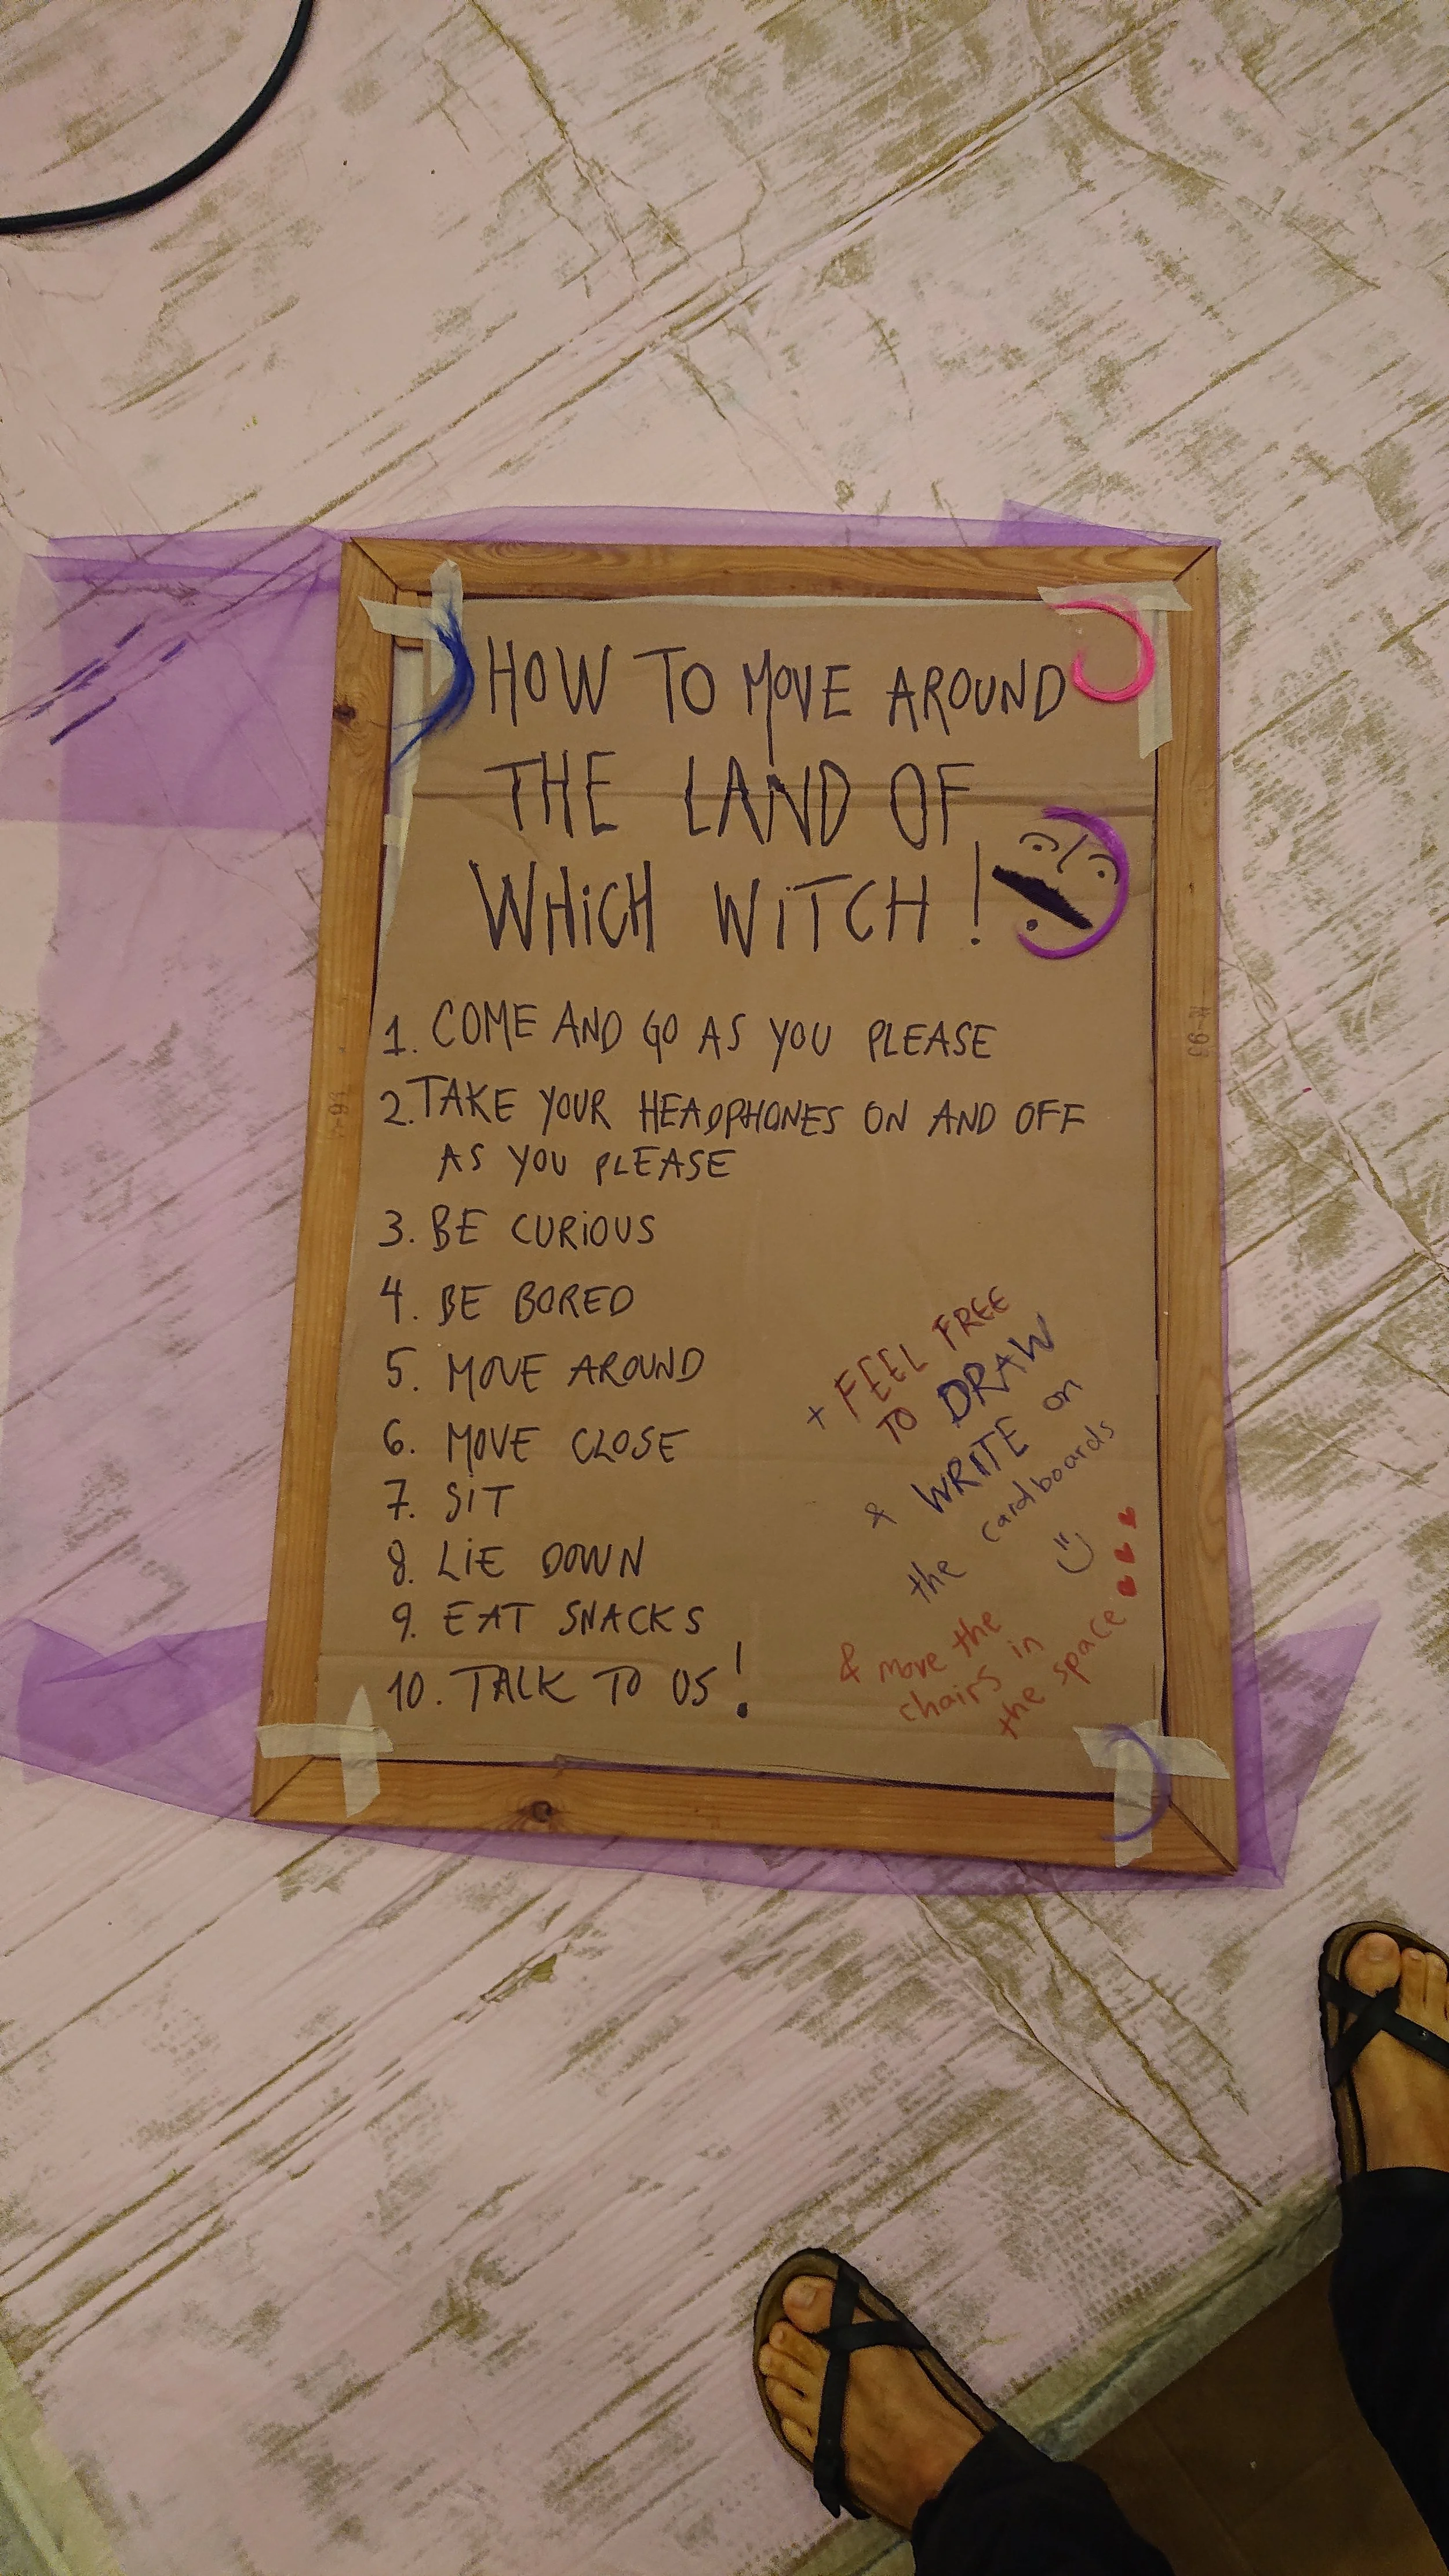 HOW TO MOVE AROUND
THE LAND OF
WHiCH WiTCH !
1. COME AND GO AS YOU PLEASE
2. TAKE YOUR HEADPHONES ON AND OFF
AS YOU PLEASE
3. BE CURiOUS
4. BE BORED
5. MOVE AROUND
6. MOVE CLOSE
7. SIT
8. LiE DOWN
9. EAT SNACKS
10. TALK TO US!
+ FEEL FREE
TO DRAW
& WRITE on
the cardboards
& move the
chairs in
the space